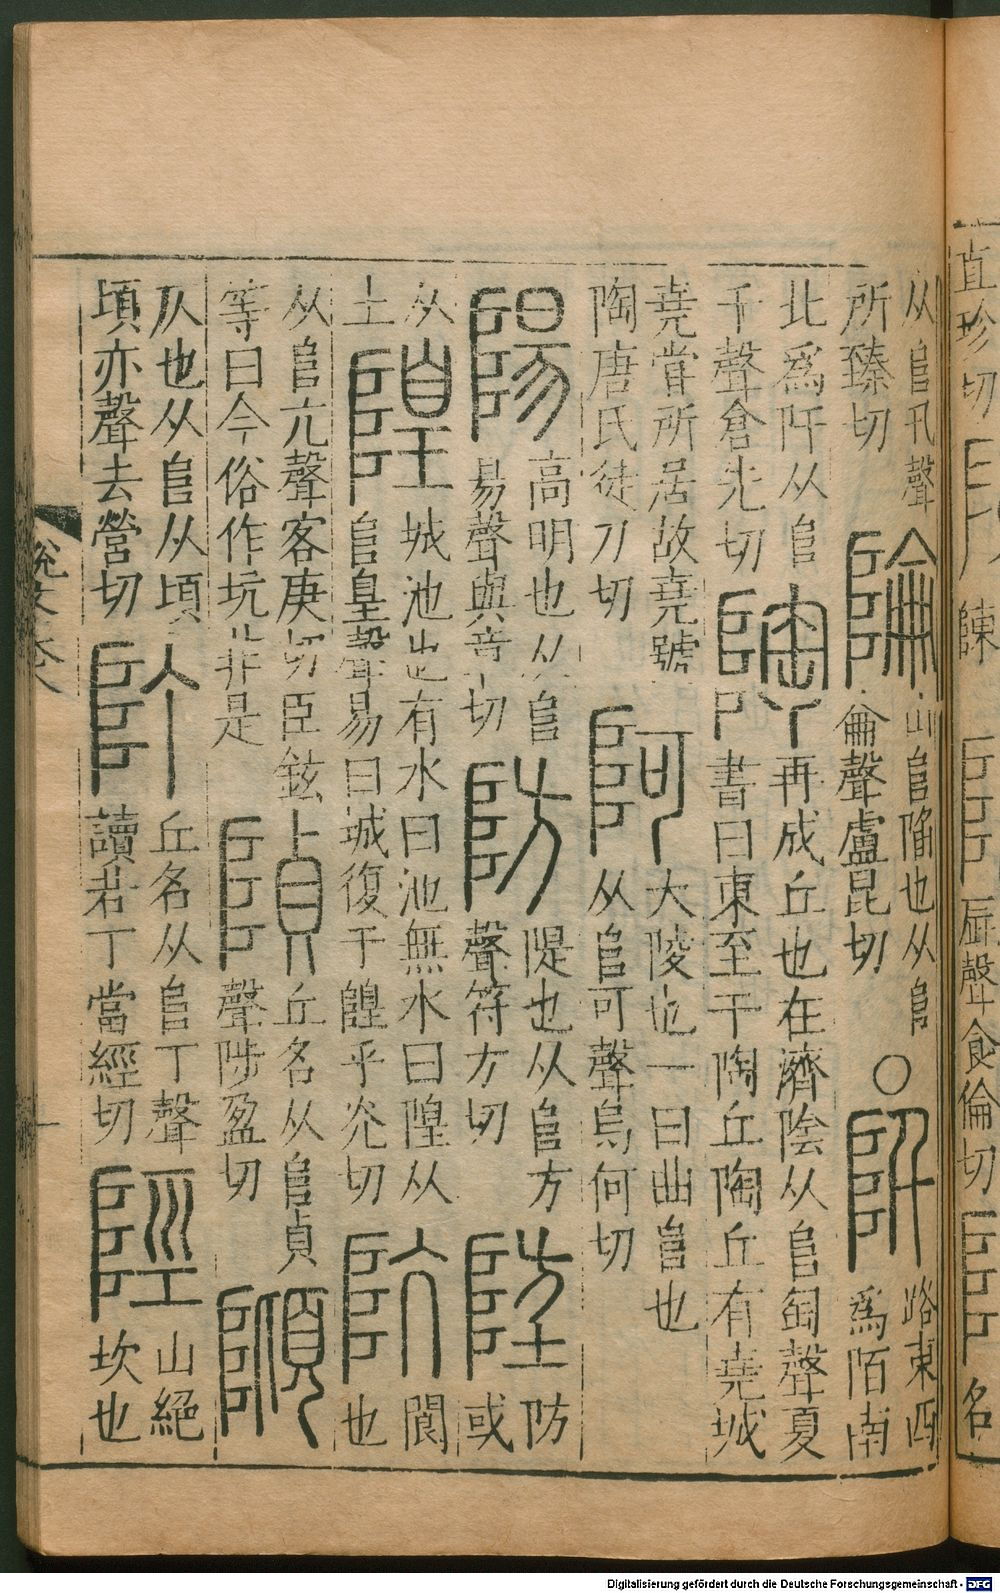 直珍切
陳
辰聲食倫切
名
从𨸏卂聲
所臻切
陯
山𨸏陷也从𨸏
侖聲盧昆切
○
阡
路東西
爲陌南
北爲阡从𨸏
千聲倉先切
陶
再成丘也在濟陰从𨸏匋聲夏
書曰東至于陶丘陶丘有堯城
堯甞所居故堯號
陶唐氏徒刀切
阿
大陵也一曰曲𨸏也
从𨸏可聲烏何切
陽
高明也从𨸏
昜聲與章切
防
隄也从𨸏方
聲符方切
防
或
从
土
隍
城池也有水曰池無水曰隍从
𨸏皇聲易曰城復于隍乎光切
阬
閬
也
从𨸏亢聲客庚切臣鉉
等曰今俗作坑非是
丘名从𨸏貞
聲陟盈切
仄也从𨸏从頃
頃亦聲去營切
丘名从𨸏丁聲
讀若丁當經切
陘
山絕
坎也
說文卷八
Digitalisierung gefördert durch die Deutsche Forschungsgemeinschaft - DFG